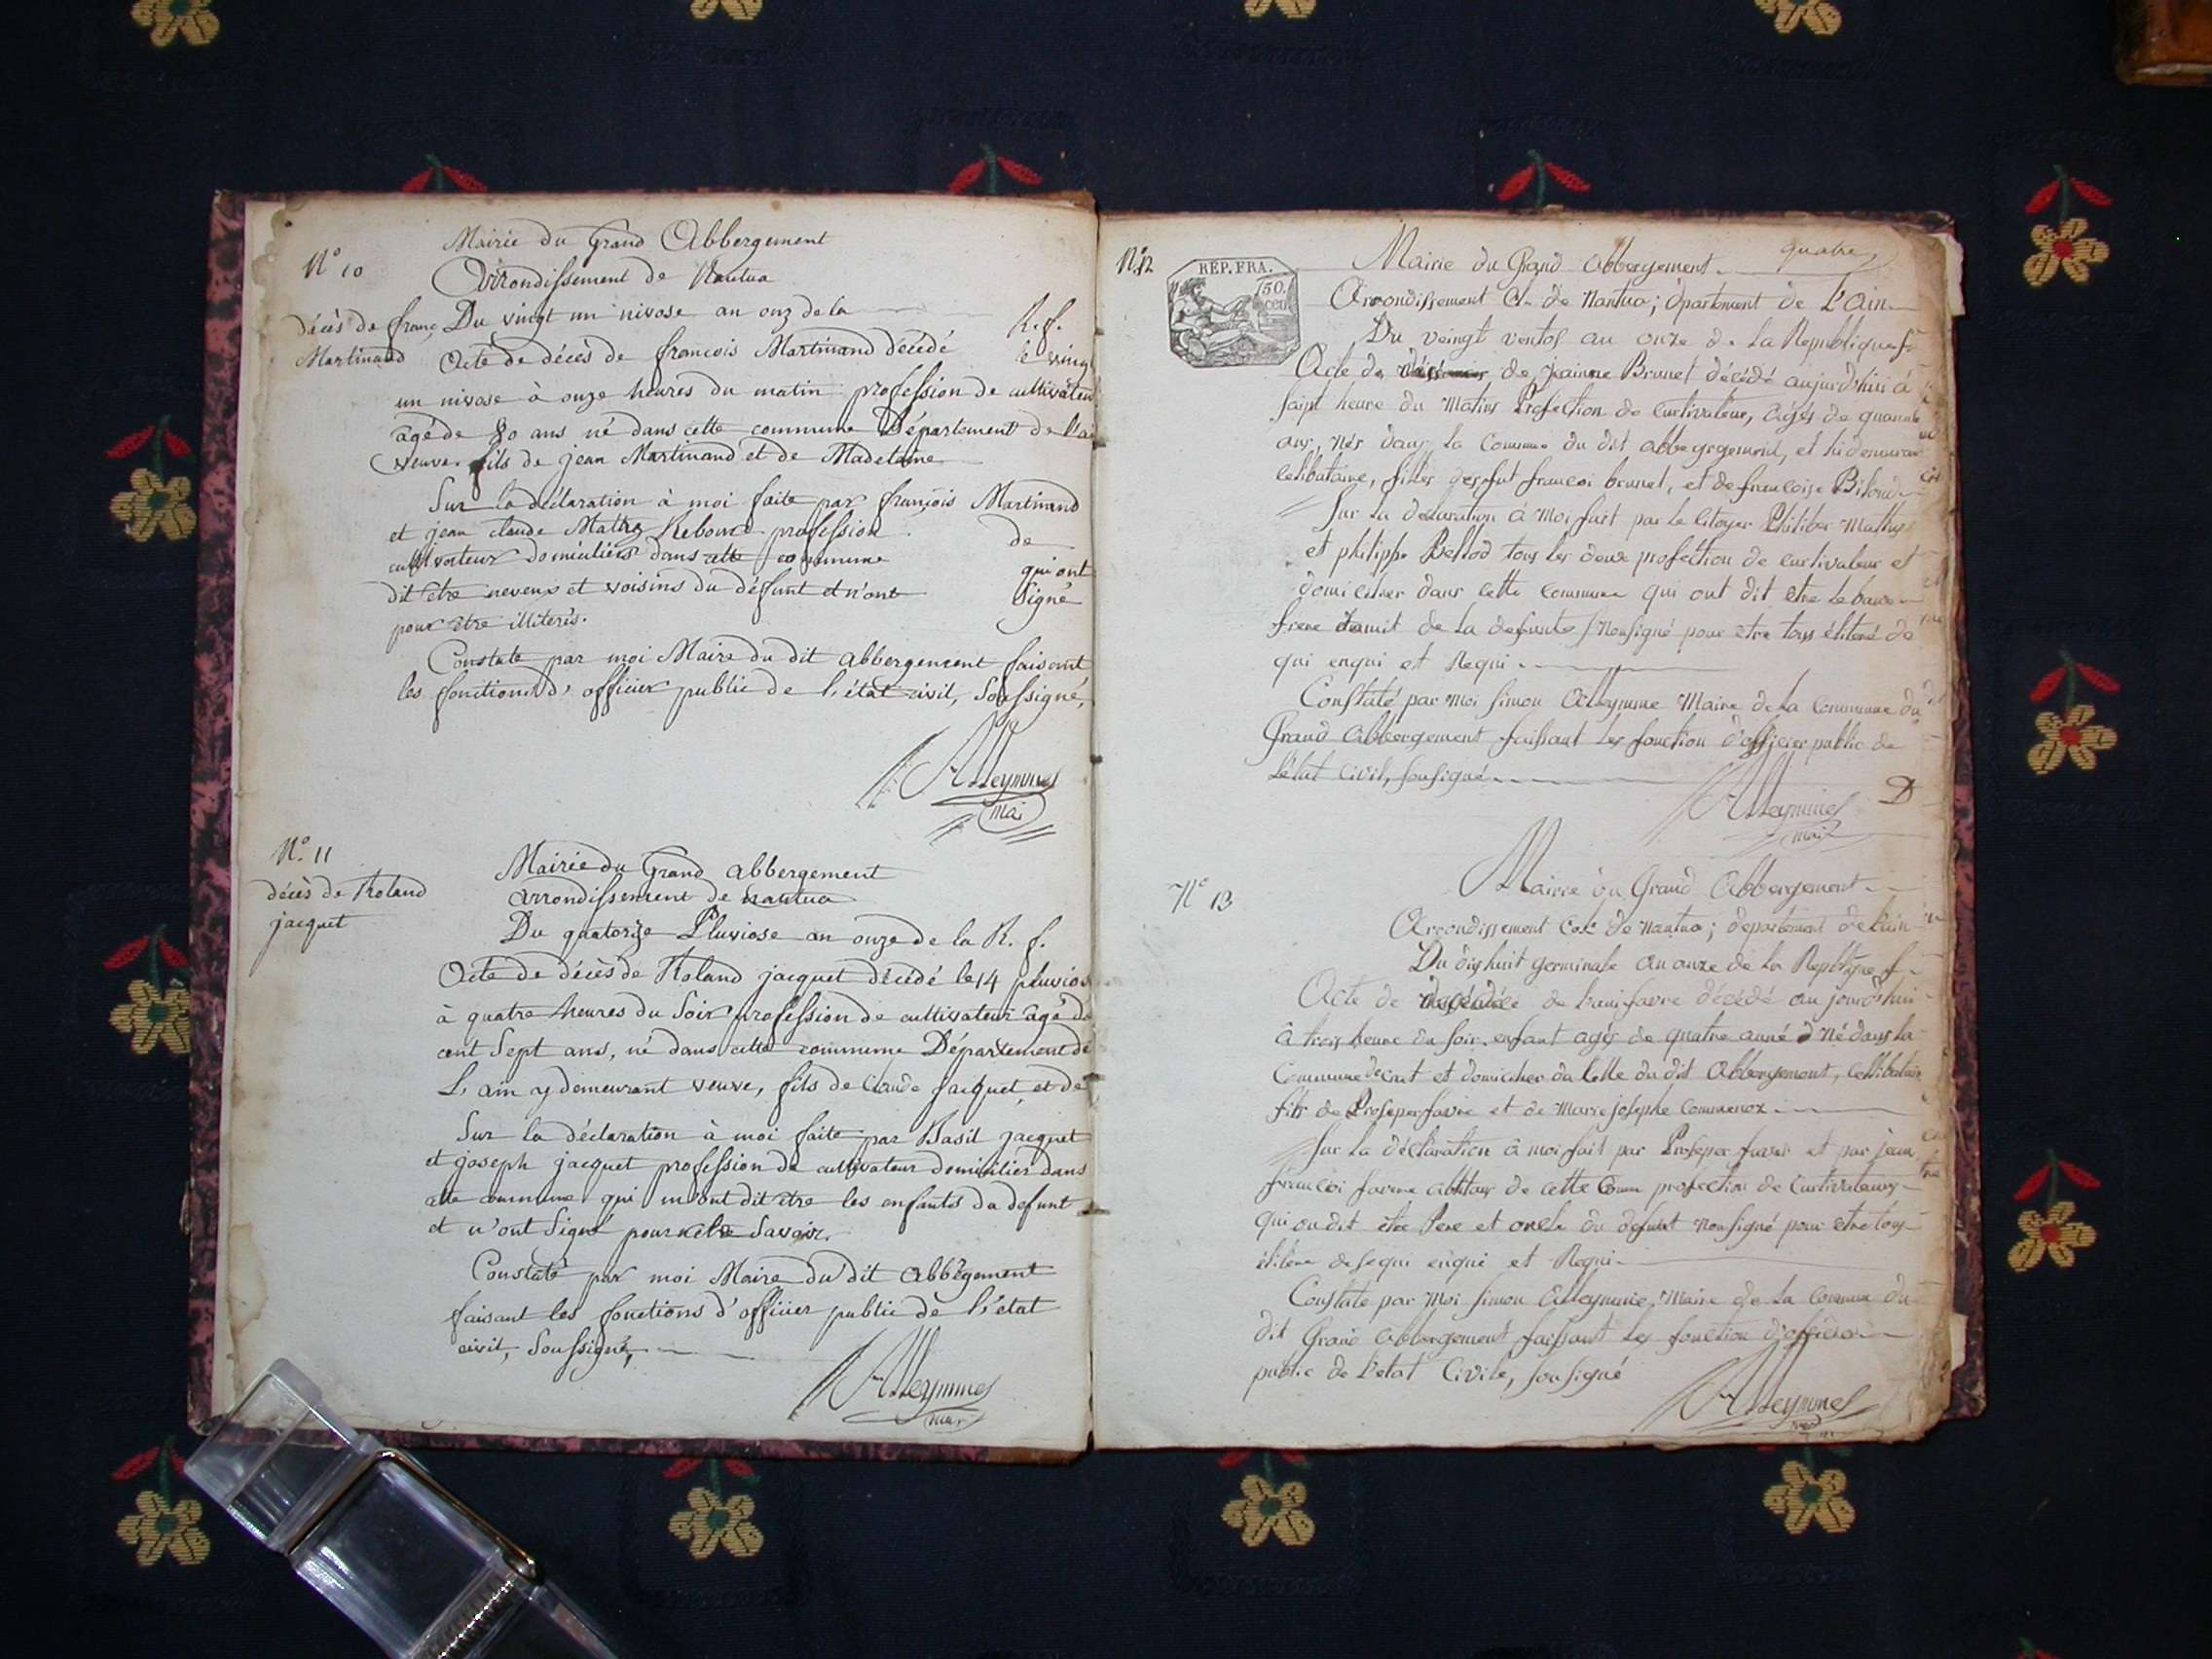 Nº 10
Mairie du Grand Abbergement
Arrondissement de Nantua
décès de franç
Martinand
Du vingt un nivose an onz de la R. f.
Acte de décès de francois Martinand décédé le ving
un nivose à onze heures du matin profession de cultivateur
agé de 80 ans né dans cette commune Département de l'ai
veuve. fils de jean Martinand et de Madelaine
Sur la déclaration à moi faite par françois Martinand
et jean claude Rebourd profession de
cultivateur domiciliés dans cette commune qui ont
dit etre neveux et voisins du défunt et n'ont Signé
pour etre illiterés.
Constaté par moi Maire du dit abbergement faisant
les fonctions d'officier public de l'état civil, Soussigné,
Alleymme
mai
Nº 11
décès de Roland
jacquet
Mairie du Grand abbergement
arrondissement de nantua
Du quatorze Pluviose an onze de la R. f.
Acte de décès de Roland jacquet décédé le 14 pluvios
à quatre heures du Soir profession de cultivateur agé de
cent Sept ans, né dans cette commune Département de
L'ain y demeurant veuve, fils de Claude jacquet, et de
Sur la déclaration à moi faite par Basil jacquet
et joseph jacquet profession de cultivateur domicilier dans
cette commune qui m'ont dit etre les enfants du defunt
et n'ont Signé pour ne le Savoir.
Constaté par moi Maire du dit abbégement
faisant les fonctions d'officier public de l'état
civil, Soussigné,
Alleymme
mair
Nº 12
REP. FRA.
50. cent
quatre
Mairie du Grand abbergement
Arondissement C. de Nantua; département de L'ain
Du veingt ventos an onze de La Republique f
Acte de de jeainne Brunet décédé aujurdhui à
saipt heure du Matins Profection de Curtivateur, agés de quarante
ans, nés dans la Commune du dit abbergegement, et hi demeurant
celibataire, filles desfut francoi brunet, et de francoise
Sur La declaration à Moi fait par Le Citoyer Philiber Mathy
et philippe Bellod tous les deux profection de curtivateur et
domicilier dans cette commune qui ont dit etre Le baux
frere et amit de La defunte Nonsigné pour etre tous élitéré de
qui enqui et Requi
Constaté par Moi Simon Alleymme Maire de La Commune du
Grand abbergement faissant Les fonction d'officier public de
L'état Civil, sousigné
Alleymme
mair
Nº 13
Mairie du Grand Abbergement
Arrondissement Col de Nantua; departement de Lain
Du dix huit germinale an onze de La Republique f
Acte de de favre décédé au jourdhui
à trois heure du soir. enfant agés de quatre anné né dans la
Commune et domicilier da Celle du dit Abbergement, cellibataire
fils de Prosper favre et de Marie josephe Commenoz
Sur La déclaration à moi fait par Prosper favre et par jean
francoi favre abitans de cette Comm profection de Curtivateurs
qui on dit etre Pere et oncle du defunt Nonsigné pour etre tous
élitéré de sequi enqui et Requi
Constaté par Moi Simon Alleymme, Maire de La Commune du
dit Grand abbergement faissant Les fonction d'officier
public de L'etat Civile, sousigné
Alleymme